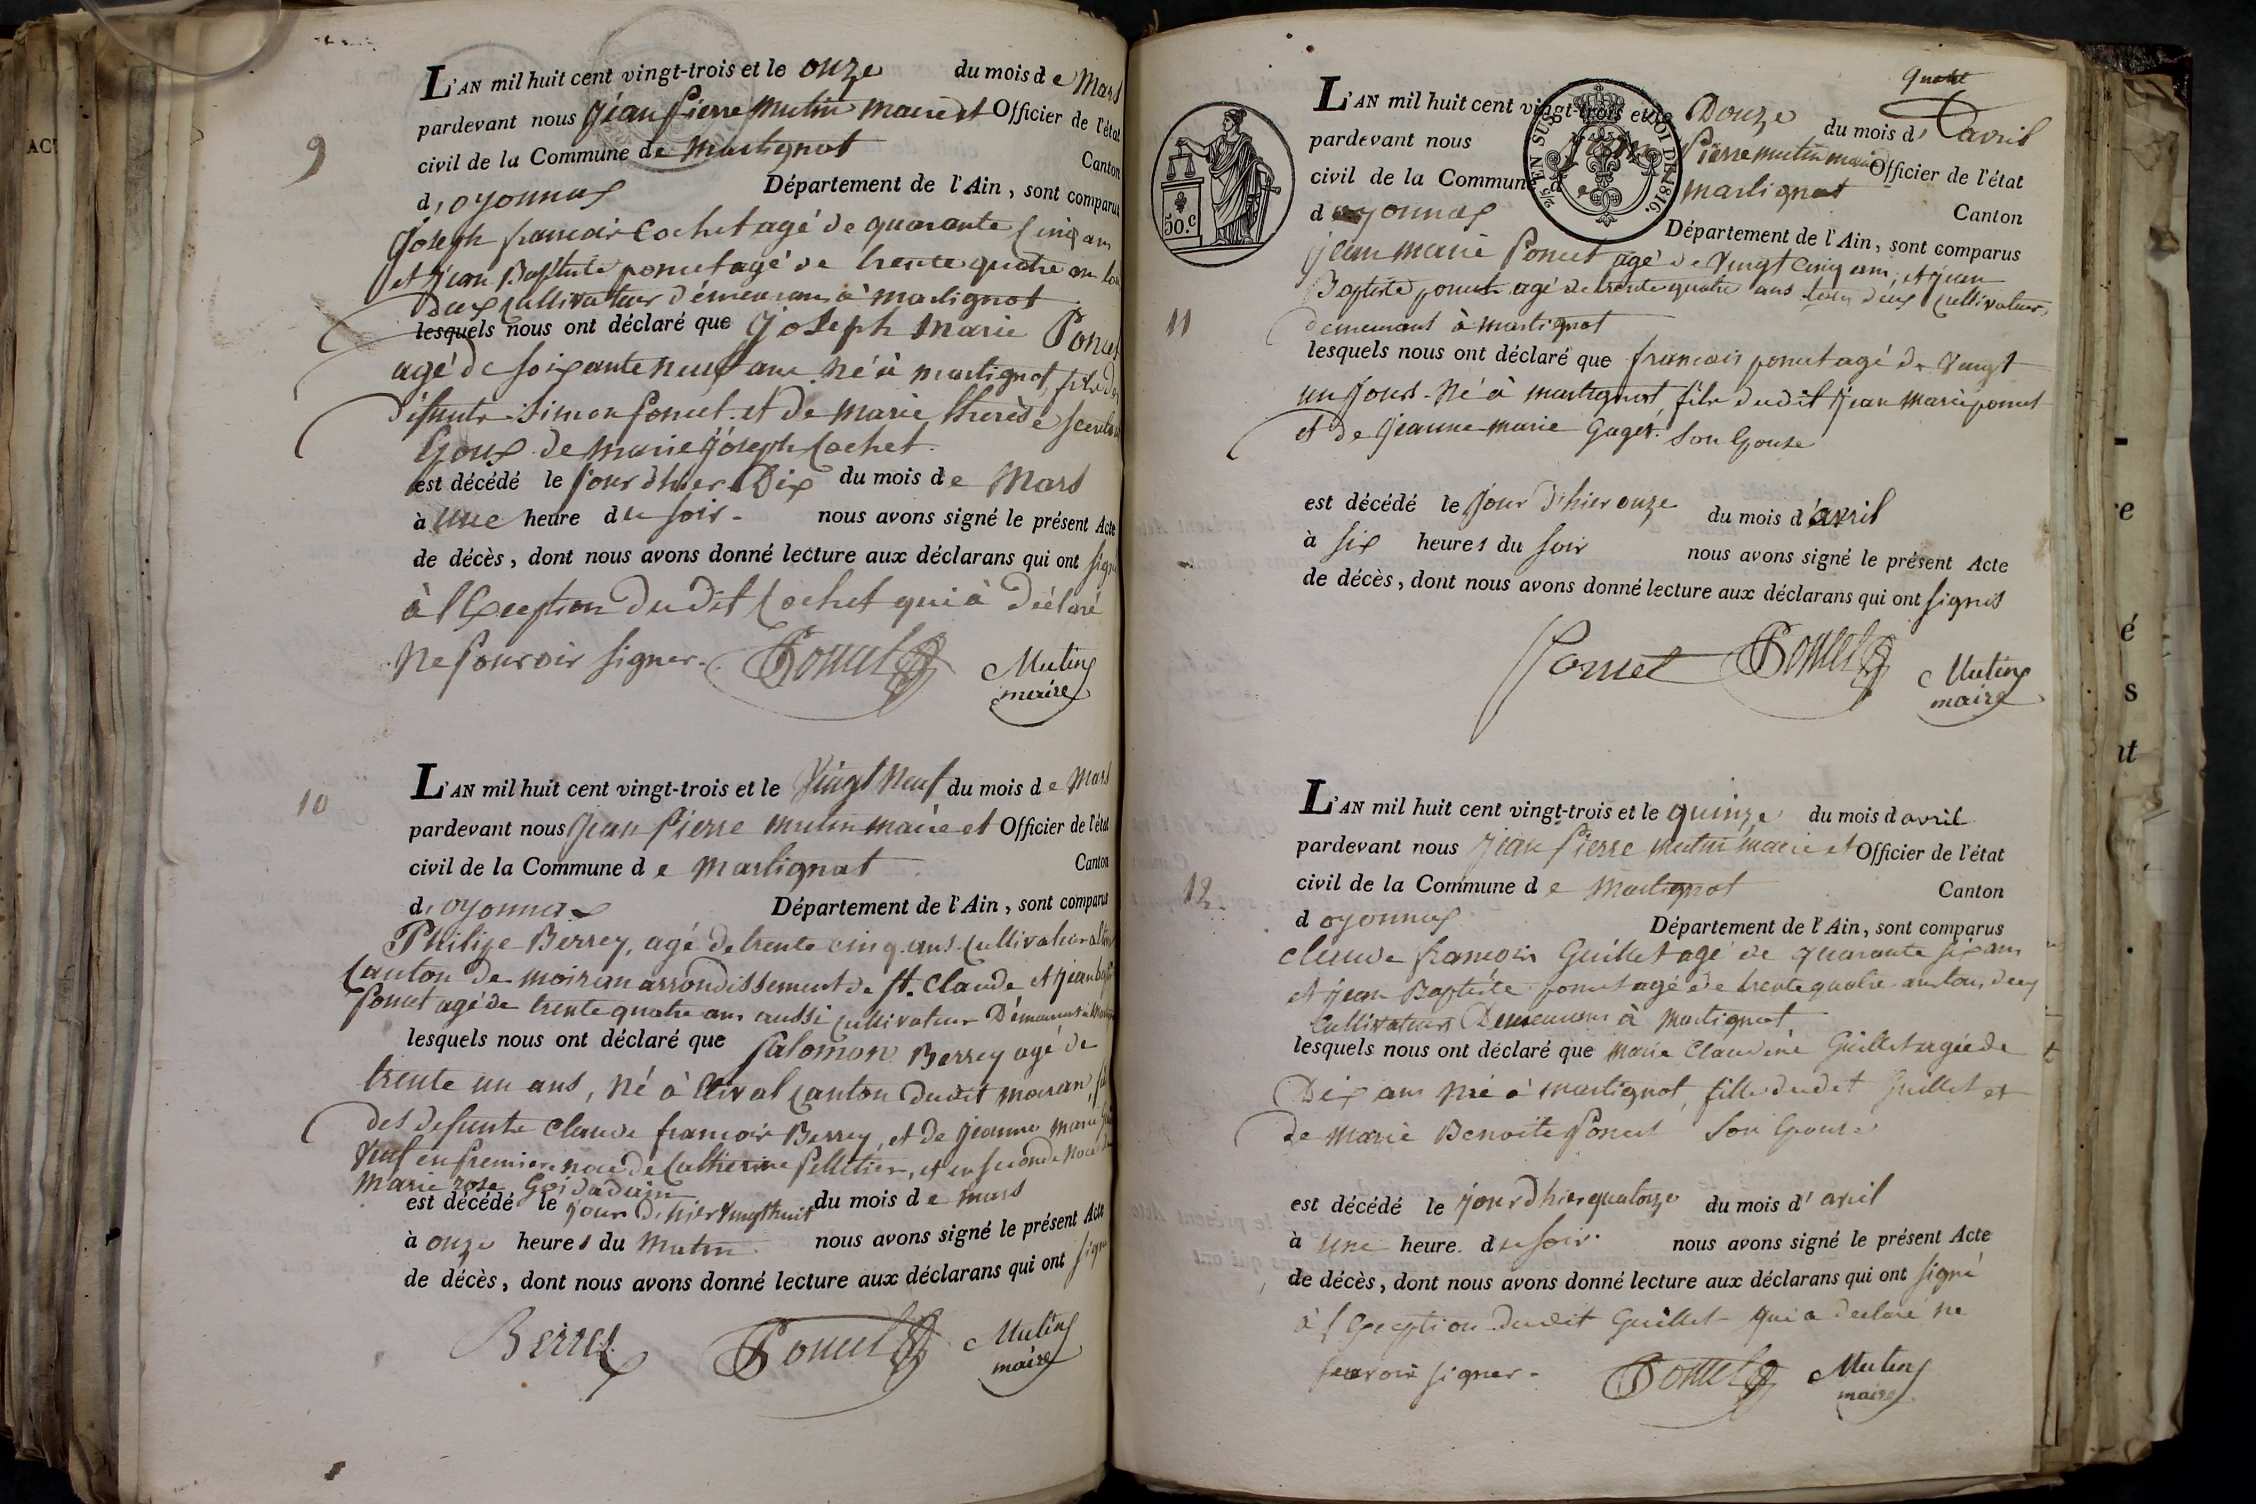 9
L'AN mil huit cent vingt-trois et le onze du mois de Mars
pardevant nous jean pierre mutin maire et Officier de l'état
civil de la Commune de martignat Canton
d'oyonnax Département de l'Ain, sont comparus
joseph francois Cochet agé de quarante Cinq ans
et jean Baptiste poncet agé de trente quatre an tou
deux Cultivateur démeurans à martignat
lesquels nous ont déclaré que joseph Marie Poncet
agé de soixante neuf ans né à martignat, fils de
défunts simon poncet et de marie thérèse
Epoux de marie joseph Cochet
est décédé le jour dhier Dix du mois de Mars
à une heure du soir. nous avons signé le présent Acte
de décès, dont nous avons donné lecture aux déclarans qui ont signé
à l'Exception dudit Cochet qui à déclaré
ne pouvoir signer. Poncet Mutin
maire
10
L'AN mil huit cent vingt-trois et le vingt neuf du mois de Mars
pardevant nous jean pierre mutin maire et Officier de l'état
civil de la Commune de Martignat Canton
d'oyonnax Département de l'Ain, sont comparus
Philipe Berrey, agé de trente cinq ans Cultivateur
Canton de moiran arrondissement de st. Claude et jean bap
poncet agé de trente quatre ans aussi Cultivateur Démeurant à
lesquels nous ont déclaré que salomon Berrey agé de
trente un ans, né à canton dudit moiran, fils
des defunts Claude francois Berrey, et de jeanne marie
Veuf en premiere noce de Catherine pelletier, et en seconde noce
Marie rose
est décédé le jour d'hier vingt huit du mois de mars
à onze heures du Matin nous avons signé le présent Acte
de décès, dont nous avons donné lecture aux déclarans qui ont signé
Berrey Poncet Mutin
maire
11
50.C
EN SUS
1816.
L'AN mil huit cent vingt-trois et le Douze du mois d'avril
pardevant nous jean Pierre mutin maire Officier de l'état
civil de la Commune de martignat
d'oyonnax Canton
Département de l'Ain, sont comparus
jean marie Poncet agé de vingt cinq ans, et jean
Baptiste poncet agé de trente quatre ans tous deux Cultivateurs
demeurant à martignat
lesquels nous ont déclaré que francois poncet agé de vingt
un jours né à martignat, fils dudit jean marie poncet
et de jeanne marie Gaget son Epouse
est décédé le jour d'hier onze du mois d'avril
à six heures du soir nous avons signé le présent Acte
de décès, dont nous avons donné lecture aux déclarans qui ont signés
Poncet Poncet Mutin
maire
12
L'AN mil huit cent vingt-trois et le quinze du mois d avril
pardevant nous jean pierre mutin maire et Officier de l'état
civil de la Commune de Martignat Canton
d oyonnax Département de l'Ain, sont comparus
claude francois Guillet agé de quarante six ans
et jean Baptiste poncet agé de trente quatre ans tous deux
Cultivateurs Demeurans à Martignat
lesquels nous ont déclaré que Marie Claudine Guillet agée de
Dix ans née à martignat, fille dudit Guillet et
de Marie Benoite Poncet son Epouse
est décédé le jour d'hier quatorze du mois d'avril
à une heure du soir. nous avons signé le présent Acte
de décès, dont nous avons donné lecture aux déclarans qui ont signé
à l'Exception dudit Guillet qui a declaré ne
savoir signer. Poncet Mutin
maire